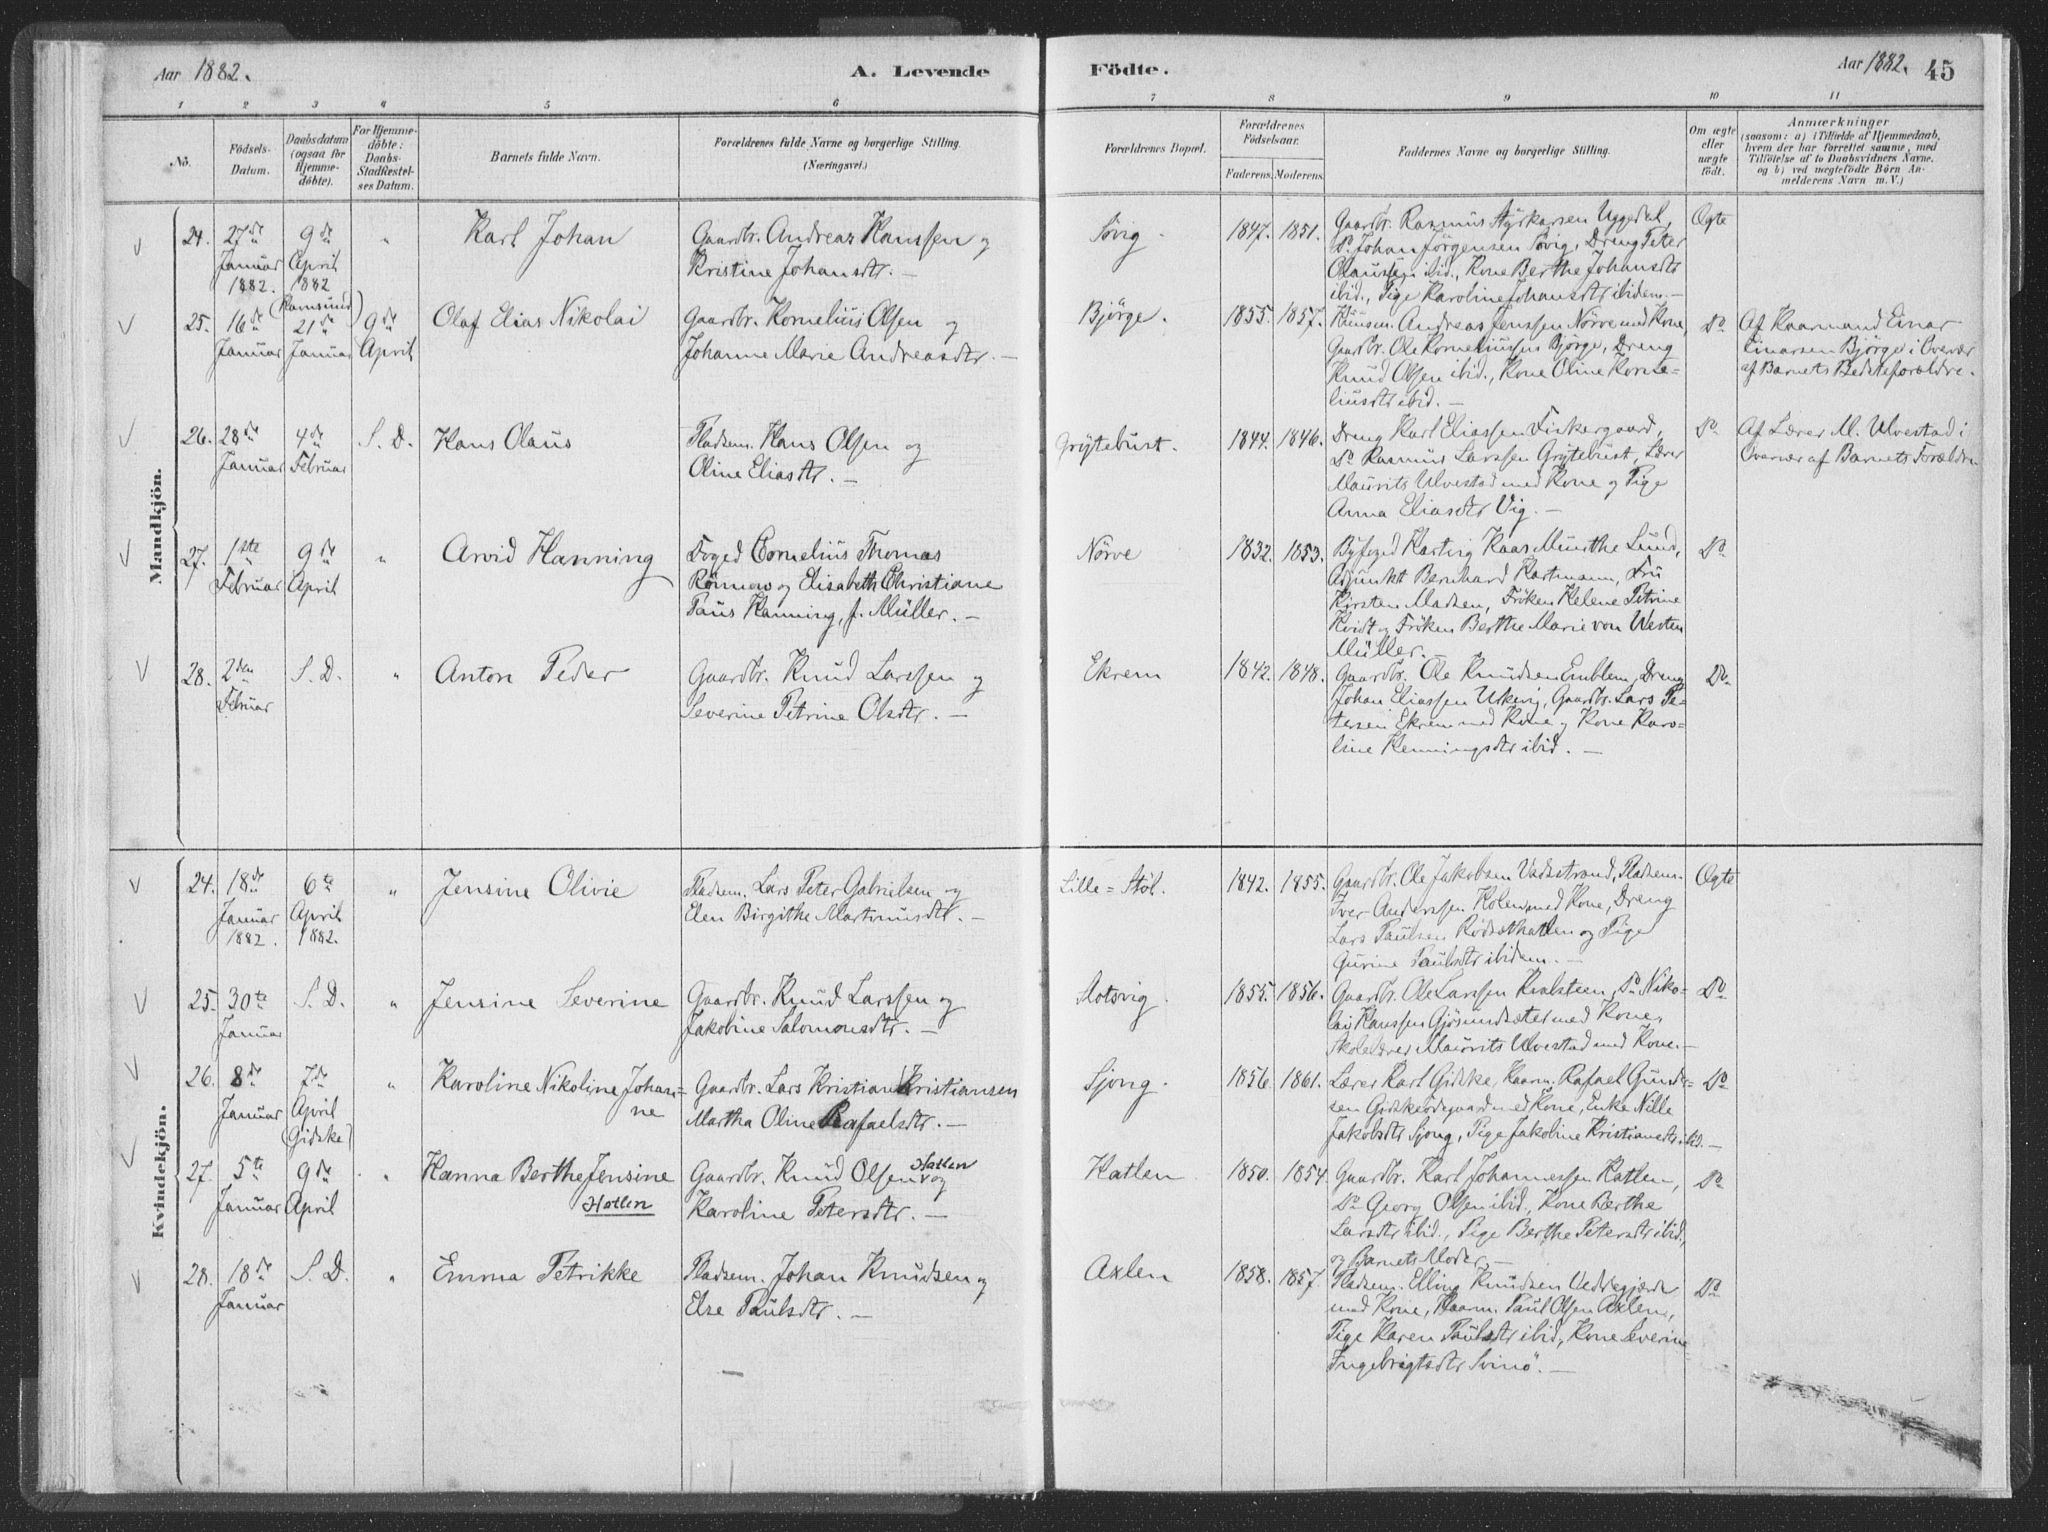 Aar 1882.
A. Levende
Födte.
Aar 1882. 45
1 2 3 4 5 6 7 8 9 10 11
No.
Födsels-
Datum.
Daabsdatum
(ogsaa for
Hjemme-
döbte).
For Hjemme-
döbte:
Daabs-
Stadfæstel-
ses Datum.
Barnets fulde Navn.
Forældrenes fulde Navne og borgerlige Stilling.
(Næringsvei.)
Forældrenes Bopæl.
Forældrenes
Födselsaar.
Faderens. Moderens.
Faddernes Navne og borgerlige Stilling.
Om ægte
eller
uægte
födt.
Anmærkninger
(saasom: a) i Tilfælde af Hjemmedaab,
hvem der har forrettet samme, med
Tilföielse af to Daabsvidners Navne,
og b) ved uægtefödte Börn An-
melderens Navn m. V.)
Mandkjön.
24. 27de
Januar
1882.
9de
April
1882
"
Karl Johan
Gaardbr. Andreas Hanssen og
Kristine Johansdtr. —
Sövig.
1847. 1851.
Gaardbr. Rasmus Styrkarsen Uggedal,
Do Johan Jörgensen Sövig, Dreng Peter
Olaussen ibid., Kone Berthe Johansdtr
ibid., Pige Karoline Johansdtr ibidem. —
Ægte
25. 16de
Januar
(Ramsund)
21de
Januar
9de
April
Olaf Elias Nikolai
Gaardbr. Kornelius Olsen og
Johanne Marie Andreasdtr. —
Björge.
1855. 1857.
Huusm. Andreas Jenssen Nörve med Kone,
Gaardbr. Ole Korneliussen Björge, Dreng
Knud Olsen ibid., Kone Oline Korne-
liusdtr ibid. —
Do
Af Kaarmand Einar
Einarsen Björge i Overvær
af Barnets Bedsteforældre.
26. 28de
Januar
4de
Februar
S. D.
Hans Olaus
Pladsem. Hans Olsen og
Oline Eliasdtr. —
Grytebust.
1844. 1846.
Dreng Karl Eliassen Fiskergaard,
Do Rasmus Larssen Grytebust, Lærer
Maurits Ulvestad med Kone og Pige
Anna Eliasdtr Vig. —
Do
Af Lærer M. Ulvestad i
Overvær af Barnets Forældre.
27. 1ste
Februar
9de
April
"
Arvid Hanning
Foged Cornelius Thomas
Rönnow og Elisabeth Christiane
Paus Hanning, f. Müller. —
Nörve
1832. 1853.
Byfoged Hartvig Kaas Munthe Lund,
Adjunkt Bernhard Hartmann, Fru
Kirsten Madsen, Fröken Helene Petrine
Kvidt og Fröken Berthe Marie von Westen
Müller. —
Do
28. 2den
Februar
S. D.
"
Anton Peder
Gaardbr. Knud Larssen og
Severine Petrine Olsdtr. —
Ekrem
1842. 1848.
Gaardbr. Ole Knudsen Emblem, Dreng
Johan Eliassen Urkevig, Gaardbr. Lars Pe-
tersen Ekrem med Kone og Kone Karo-
line Henningsdtr ibid. —
Do
Kvindekjön.
24. 18de
Januar
1882.
6te
April
1882.
"
Jensine Olivie
Pladsem. Lars Peter Gabrielsen og
Elen Birgithe Martinusdtr. —
Lille=Stöl.
1842. 1855.
Gaardbr. Ole Jakobsen Vadsstrand, Pladsem.
Iver Anderssen Holen med Kone, Dreng
Lars Paulsen Rödsæthatlen og Pige
Gurine Paulsdtr ibidem. —
Ægte
25. 30te
Januar
S. D.
"
Jensine Severine
Gaardbr. Knud Larssen og
Jakobine Salomonsdtr. —
Slotsvig.
1855. 1856.
Gaardbr. Ole Larssen Kvalsteen, Do Niko-
lai Hanssen Gjösundsæter med Kone,
Skolelærer Maurits Ulvestad med Kone. —
Do
26. 8de
Januar
7de
April
(Gidske)
"
Karoline Nikoline Johan=
ne
Gaardbr. Lars Kristian Kristiansen
Martha Oline Rafaelsdtr. —
Sjong.
1856. 1861.
Lærer Karl Gidske, Kaarm. Rafael Gunder-
sen Gidskeödegaard med Kone, Enke Nille
Jakobsdtr Sjong, Pige Jakobine Kristiansdtr ibid. —
Do
27. 5te
Januar
9de
April
"
Hanna Berthe Jensine
Hatlen
Gaardbr. Knud Olsen Hatlen og
Karoline Petersdtr. —
Hatlen
1850. 1854.
Gaardbr. Karl Johannessen Hatlen,
Do Georg Olsen ibid., Kone Berthe
Larsdtr ibid., Pige Berthe Petersdtr ibid.,
og Barnets Moder. —
Do
28. 18de
Januar
S. D.
"
Emma Petrikke
Pladsem. Johan Knudsen og
Else Paulsdtr. —
Axlen
1858. 1857.
Pladsem. Elling Knudsen Vedregjærde
med Kone, Kaarm. Paul Olsen Axlen,
Pige Karen Paulsdtr ibid., Kone Severine
Ingebrigtsdtr Svinö. —
Do